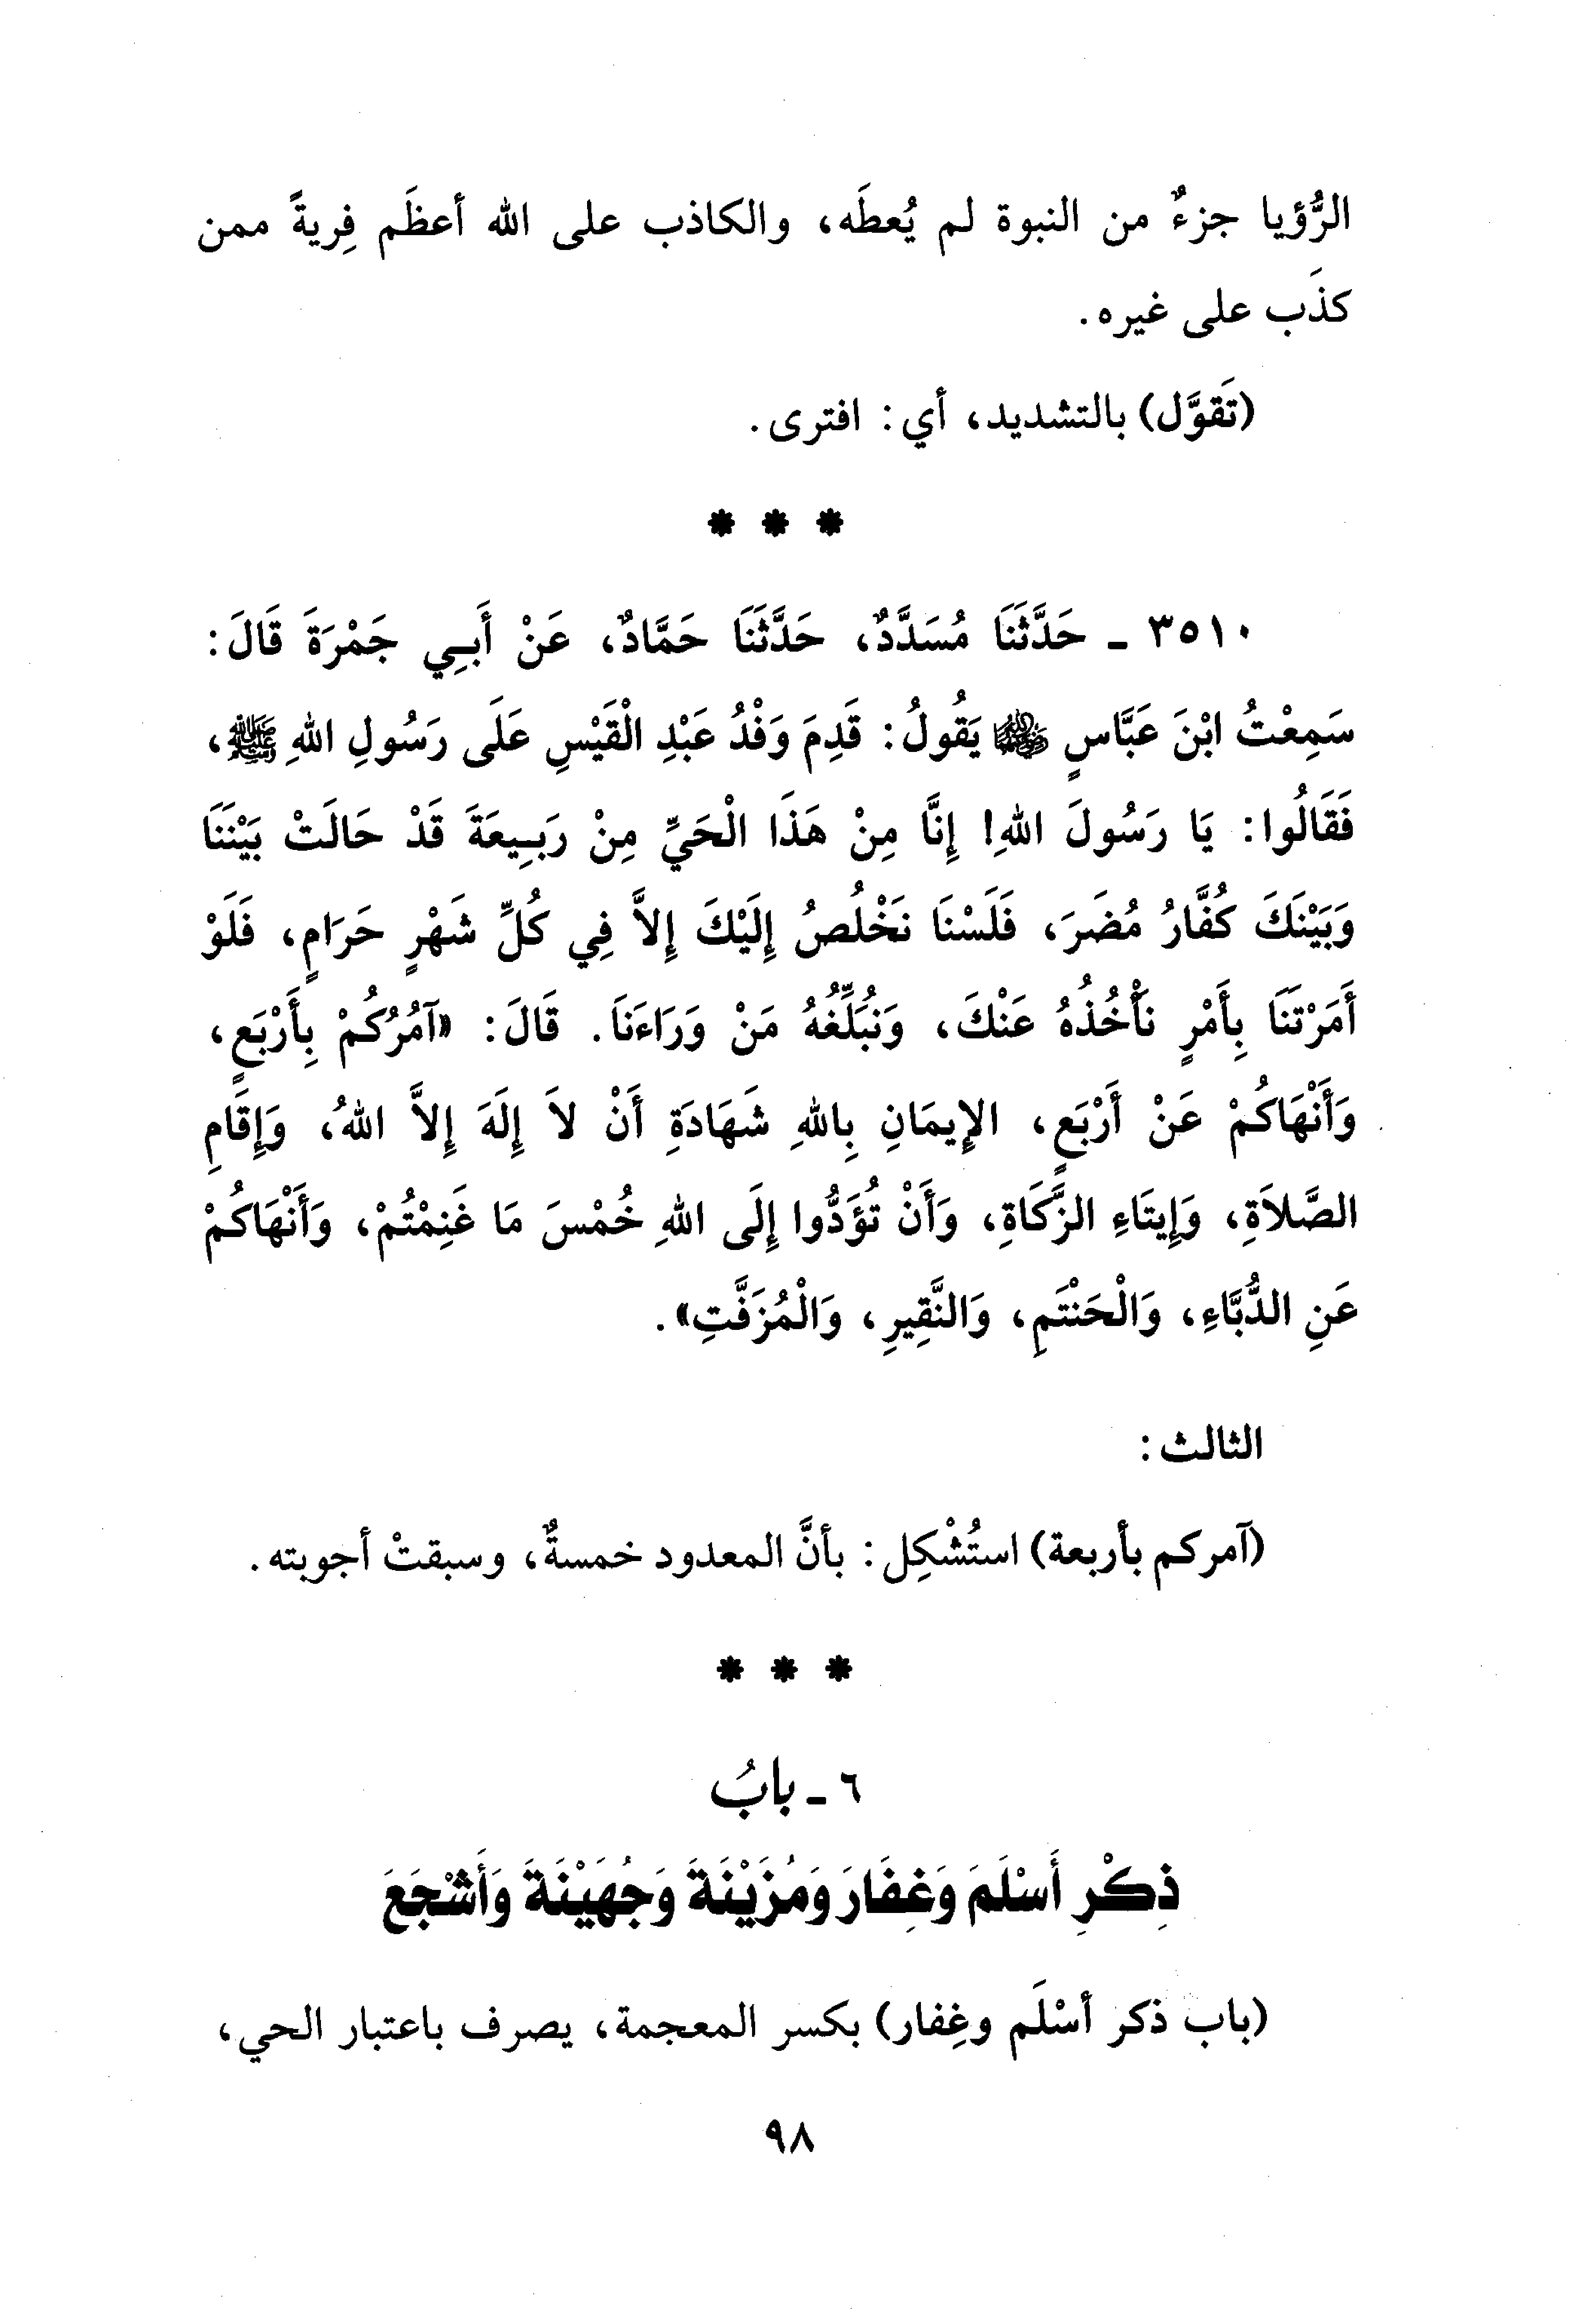 الرُّؤيا جزءٌ من النبوة لم يُعطَه، والكاذب على الله أعظَم فِريةً ممن
كذَب على غيره.
(تَقوَّل) بالتشديد، أي: افترى.
* * *
٣٥١٠ ـ حَدَّثَنَا مُسَدَّدٌ، حَدَّثَنَا حَمَّادٌ، عَنْ أَبِي جَمْرَةَ قَالَ:
سَمِعْتُ ابْنَ عَبَّاسٍ ﵄ يَقُولُ: قَدِمَ وَفْدُ عَبْدِ الْقَيْسِ عَلَى رَسُولِ اللهِ ﷺ،
فَقَالُوا: يَا رَسُولَ اللهِ! إِنَّا مِنْ هَذَا الْحَيِّ مِنْ رَبِيعَةَ قَدْ حَالَتْ بَيْنَنَا
وَبَيْنَكَ كُفَّارُ مُضَرَ، فَلَسْنَا نَخْلُصُ إِلَيْكَ إِلاَّ فِي كُلِّ شَهْرٍ حَرَامٍ، فَلَوْ
أَمَرْتَنَا بِأَمْرٍ نَأْخُذُهُ عَنْكَ، وَنُبَلِّغُهُ مَنْ وَرَاءَنَا. قَالَ: «آمُرُكُمْ بِأَرْبَعٍ،
وَأَنْهَاكُمْ عَنْ أَرْبَعٍ، الإِيمَانِ بِاللهِ شَهَادَةِ أَنْ لاَ إِلَهَ إِلاَّ اللهُ، وَإِقَامِ
الصَّلاَةِ، وَإِيتَاءِ الزَّكَاةِ، وَأَنْ تُؤَدُّوا إِلَى اللهِ خُمْسَ مَا غَنِمْتُمْ، وَأَنْهَاكُمْ
عَنِ الدُّبَّاءِ، وَالْحَنْتَمِ، وَالنَّقِيرِ، وَالْمُزَفَّتِ».
الثالث:
(آمركم بأربعة) استُشْكِل: بأنَّ المعدود خمسةٌ، وسبقتْ أجوبته.
* * *
٦ ـ بابُ
ذِكْرِ أَسْلَمَ وَغِفَارَ وَمُزَيْنَةَ وَجُهَيْنَةَ وَأَشْجَعَ
(باب ذكر أسْلَم وغِفار) بكسر المعجمة، يصرف باعتبار الحي،
٩٨